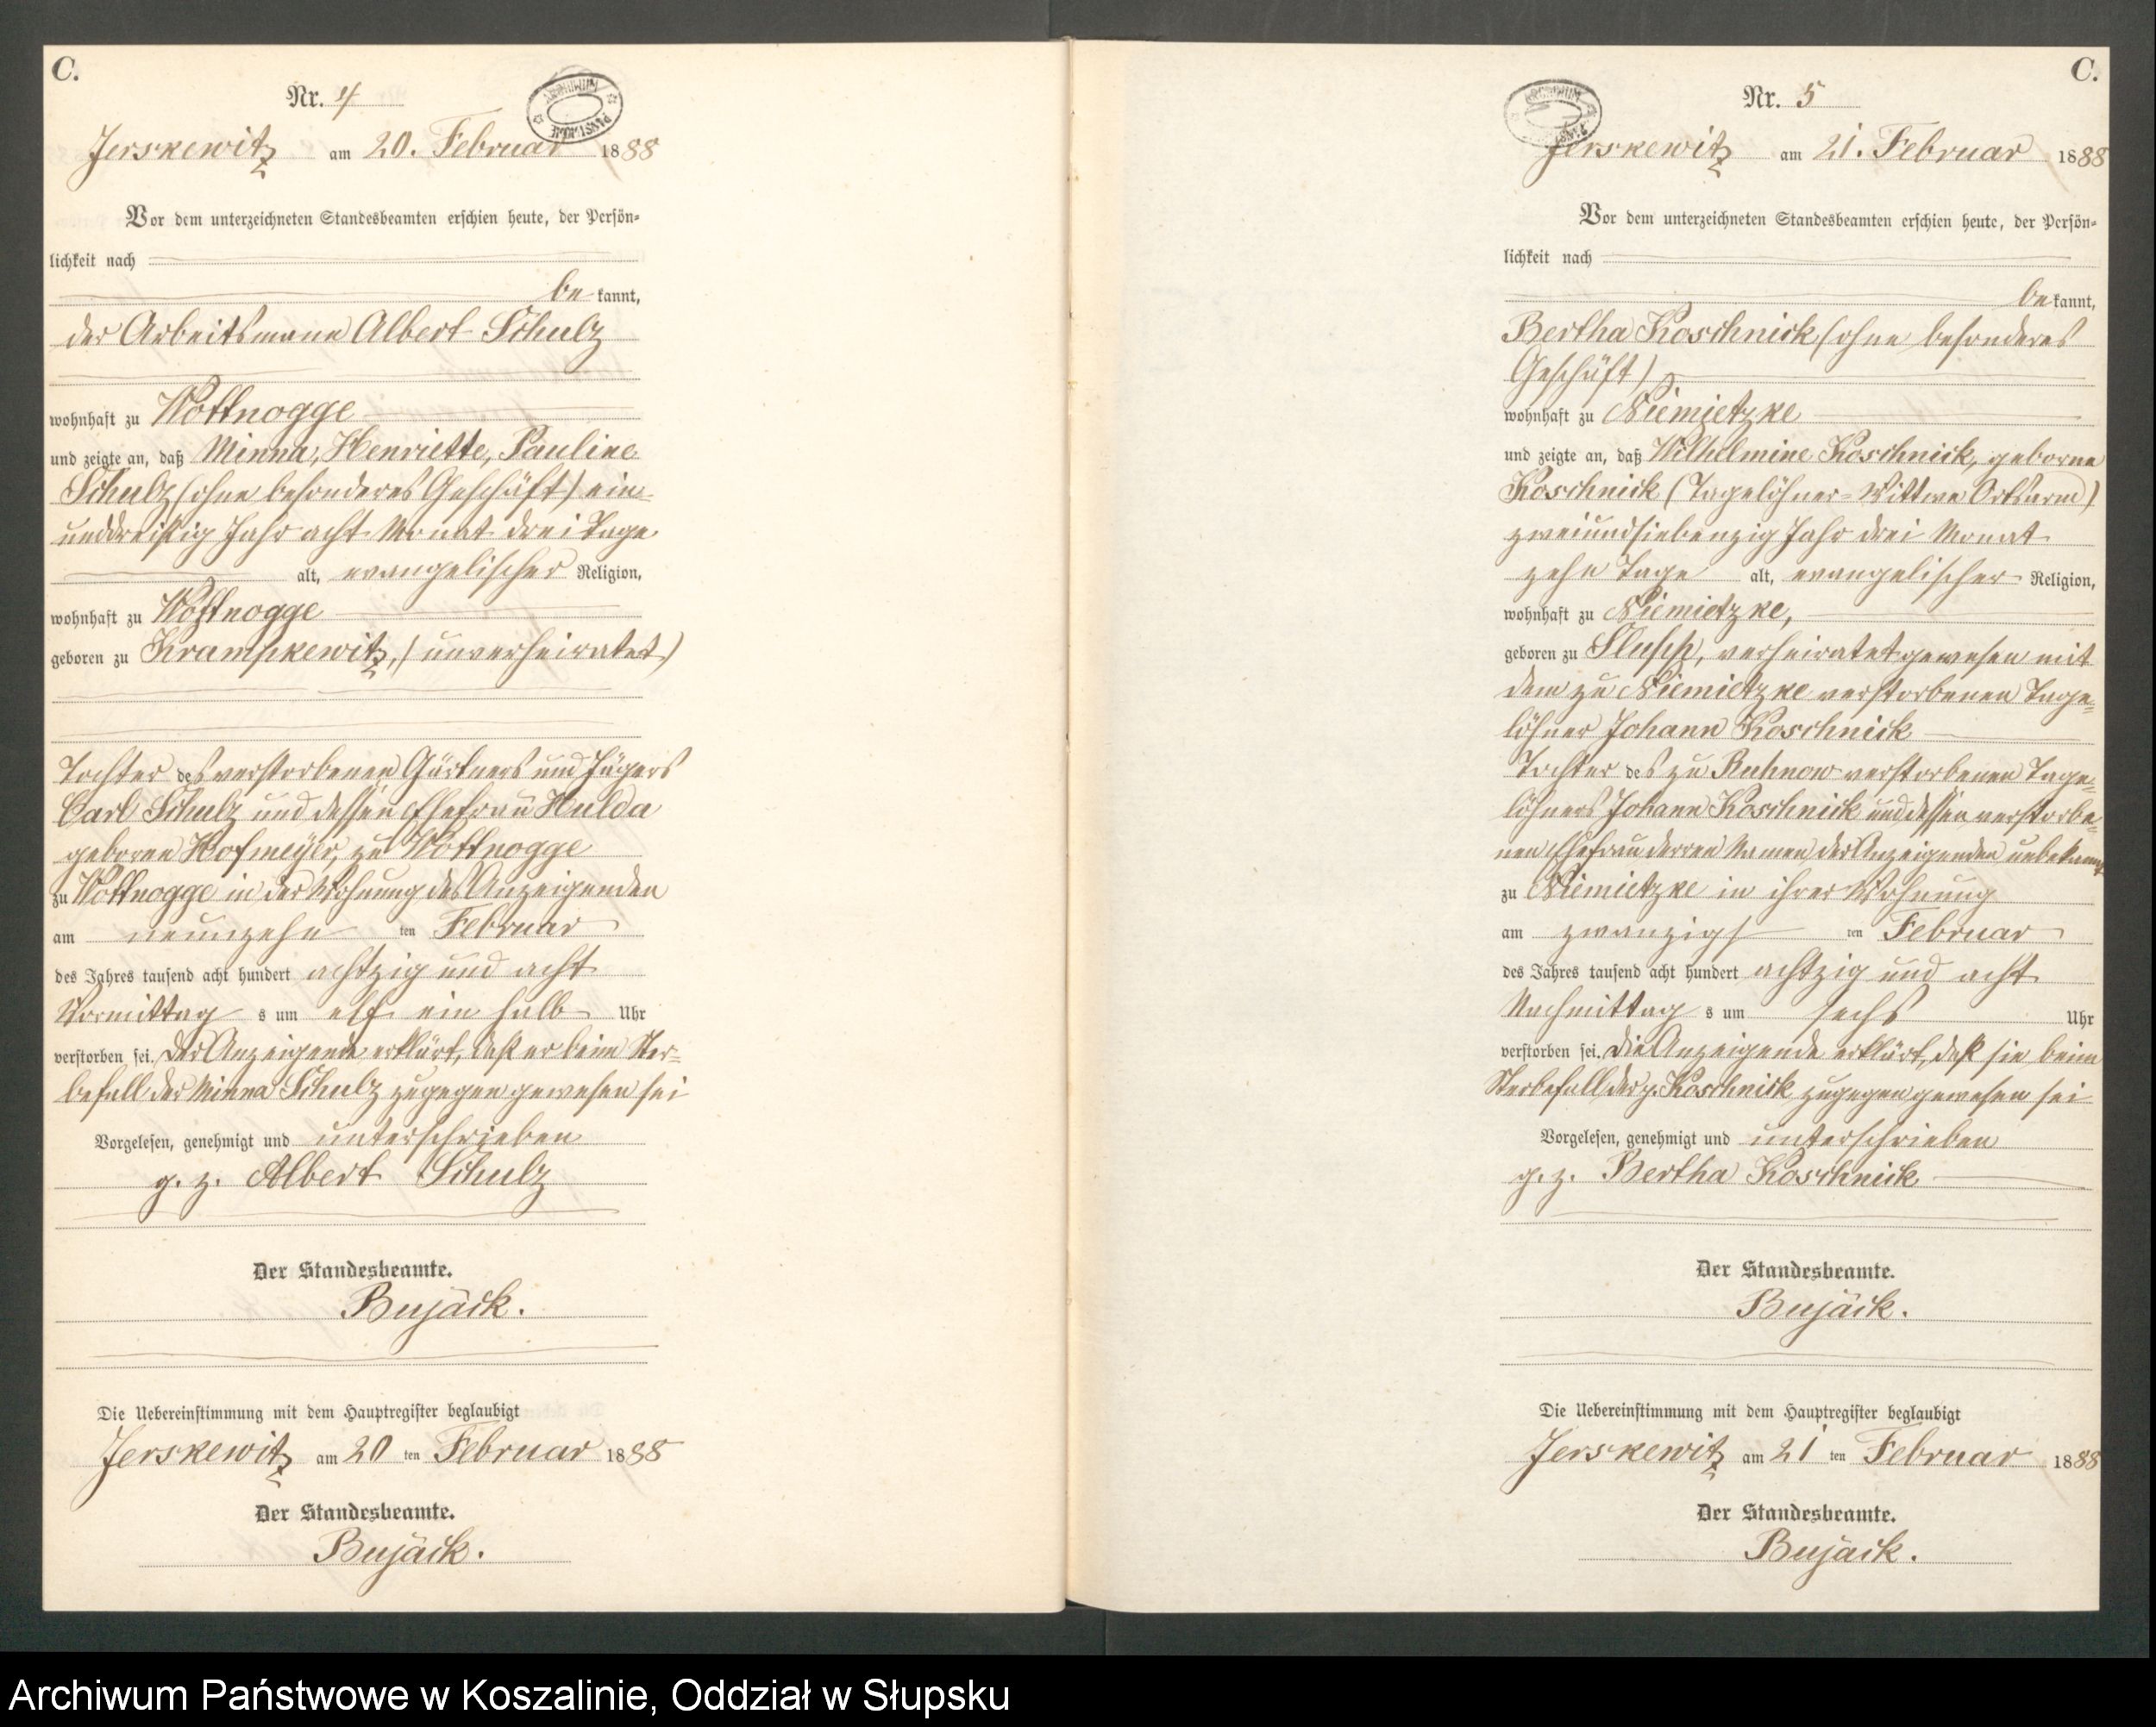 C.
Nr. 4
ARCHIWUM PAŃSTWOWE
Jerskewitz am 20. Februar 1888
Vor dem unterzeichneten Standesbeamten erschien heute, der Persön-
lichkeit nach
be kannt,
der Arbeitsmann Albert Schulz
wohnhaft zu Wottnogge
und zeigte an, daß Minna, Henriette, Pauline
Schulz (ohne besonderes Geschäft) ein-
unddreißig Jahr acht Monat drei Tage
alt, evangelischer Religion,
wohnhaft zu Wottnogge
geboren zu Krampkewitz, (unverheiratet)
Tochter des verstorbenen Gärtners und Jägers
Carl Schulz und dessen Ehefrau Hulda
geborne Hofmeyer, zu Wottnogge
zu Wottnogge in der Wohnung des Anzeigenden
am neunzehn ten Februar
des Jahres tausend acht hundert achtzig und acht
Vormittag s um elf ein halb Uhr
verstorben sei. Der Anzeigende erklärt, daß er beim Ster-
befall der Minna Schulz zugegen gewesen sei
Vorgelesen, genehmigt und unterschrieben
g. z. Albert Schulz
Der Standesbeamte.
Bujäck.
Die Uebereinstimmung mit dem Hauptregister beglaubigt
Jerskewitz am 20 ten Februar 1888
Der Standesbeamte.
Bujäck.
C.
Nr. 5
ARCHIWUM
Jerskewitz am 21. Februar 1888
Vor dem unterzeichneten Standesbeamten erschien heute, der Persön-
lichkeit nach
be kannt,
Bertha Koschnick (ohne besonderes
Geschäft)
wohnhaft zu Niemietzke
und zeigte an, daß Wilhelmine Koschnick, geborne
Koschnick (Tagelöhner-Wittwe Ortsarm)
zweiundsiebenzig Jahr drei Monat
zehn Tage alt, evangelischer Religion,
wohnhaft zu Niemietzke,
geboren zu Slupp, verheiratet gewesen mit
dem zu Niemietzke verstorbenen Tage-
löhner Johann Koschnick
Tochter des zu Ruhnow verstorbenen Tage-
löhners Johann Koschnick und dessen verstorbe-
nen Ehefrau derren Namen der Anzeigenden unbekannt
zu Niemietzke in ihrer Wohnung
am zwanzigs ten Februar
des Jahres tausend acht hundert achtzig und acht
Nachmittag s um sechs Uhr
verstorben sei. Die Anzeigende erklärt, daß sie beim
Sterbefall der p. Koschnick zugegen gewesen sei
Vorgelesen, genehmigt und unterschrieben
g. z. Bertha Koschnick
Der Standesbeamte.
Bujäck.
Die Uebereinstimmung mit dem Hauptregister beglaubigt
Jerskewitz am 21 ten Februar 1888
Der Standesbeamte.
Bujäck.
Archiwum Państwowe w Koszalinie, Oddział w Słupsku